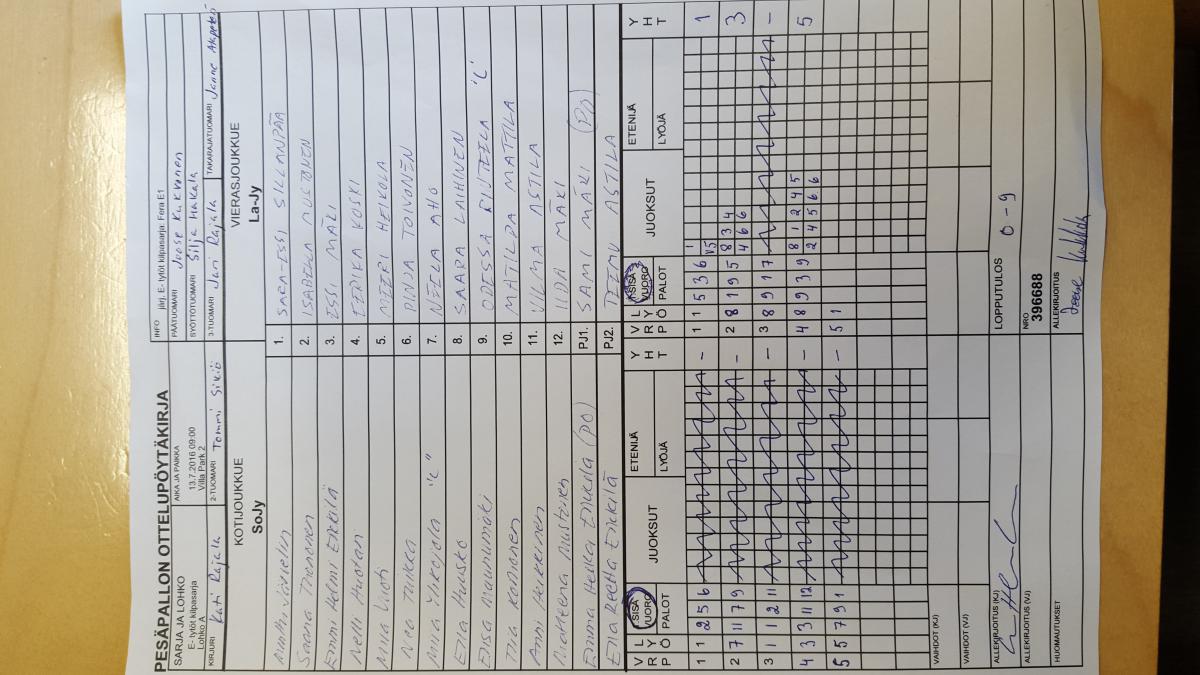 PESÄPALLON OTTELUPÖYTÄKIRJA
SARJA JA LOHKO
E- tytöt kilpasarja
Lohko A
AIKA JA PAIKKA
13.7.2016 09:00
Villa Park 2
INFO järj. E- tytöt kilpasarja Fera E1
PÄÄTUOMARI Joose Kukkonen
SYÖTTÖTUOMARI Silja Hakala
KIRJURI Kati Rajala
2-TUOMARI Tommi Sikiö
3-TUOMARI Jari Rajala
TAKARAJATUOMARI Janne
KOTIJOUKKUE
SoJy
VIERASJOUKKUE
La-Jy
1. SARA-ESSI SILLANPÄÄ
Saana Tienonen 2. ISABELLA MUSTONEN
Emmi Helmi Erkkilä 3. ESSI MÄKI
Nelli Huotari 4. EERIKA KOSKI
Miia Luoti 5. MEERI HEIKOLA
Nea 6. PINJA TOIVONEN
Miia Ylikojola "C" 7. NEELA AHO
Ella Huusko 8. SAARA LAHINEN
Elisa Maunumäki 9. ODESSA "C"
Tiia Komonen 10. MATILDA MATTILA
Anni Heikkinen 11. VILMA ASTILA
Mustonen 12. IIDA MÄKI
Emma Heika Erkkilä (PO) PJ1. SAMI MÄKI (PO)
Ella Reetta Erkkilä PJ2. TEEMU ASTILA
V R P
L Y Ö
SISÄ VUORO
PALOT
JUOKSUT
ETENIJÄ
LYÖJÄ
Y H T
V R P
L Y Ö
SISÄ VUORO
PALOT
JUOKSUT
ETENIJÄ
LYÖJÄ
Y H T
1 1 2 5 6 – 1 1 5 3 6 1 1
V5
2 7 11 7 9 – 2 8 1 9 5 8 3 4 3
4 6 6
3 1 1 2 11 – 3 8 9 1 7 –
4 3 3 11 12 – 4 8 9 3 9 8 1 2 4 5 5
2 4 5 6 6
5 5 7 9 1 – 5 1
VAIHDOT (KJ)
VAIHDOT (VJ)
LOPPUTULOS 0-9
ALLEKIRJOITUS (KJ)
ALLEKIRJOITUS (VJ)
NRO
396688
ALLEKIRJOITUS
HUOMAUTUKSET
Joose